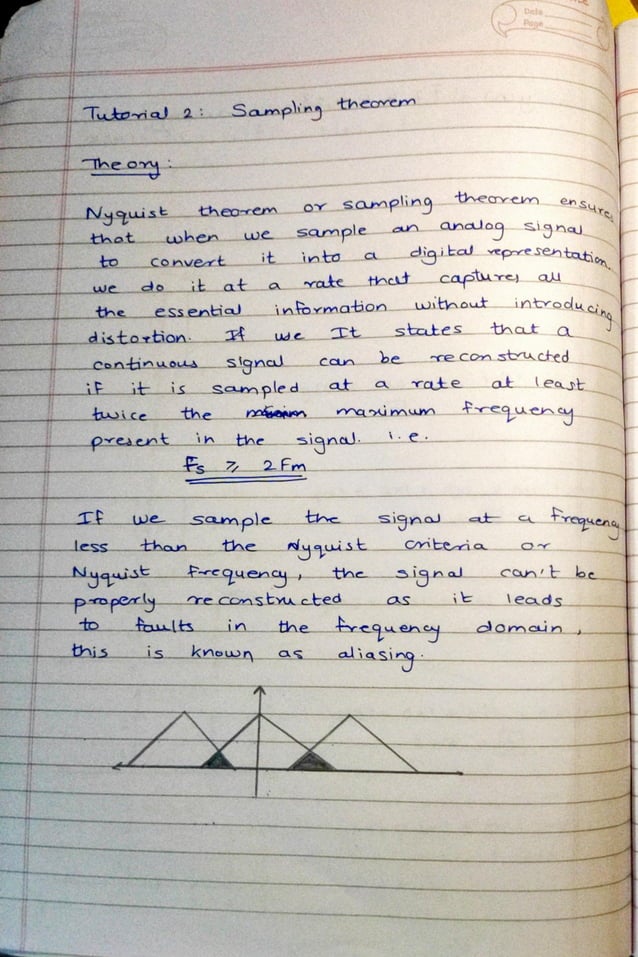 Date
Page
Tutorial 2: Sampling theorem
Theory:
Nyquist theorem or sampling theorem ensures
that when we sample an analog signal
to convert it into a digital representation,
we do it at a rate that captures all
the essential information without introducing
distortion. If we It states that a
continuous signal can be reconstructed
if it is sampled at a rate at least
twice the maximum frequency
present in the signal. i.e.
Fs ⩾ 2Fm
If we sample the signal at a frequency
less than the Nyquist criteria or
Nyquist Frequency, the signal can't be
properly reconstructed as it leads
to faults in the frequency domain,
this is known as aliasing.